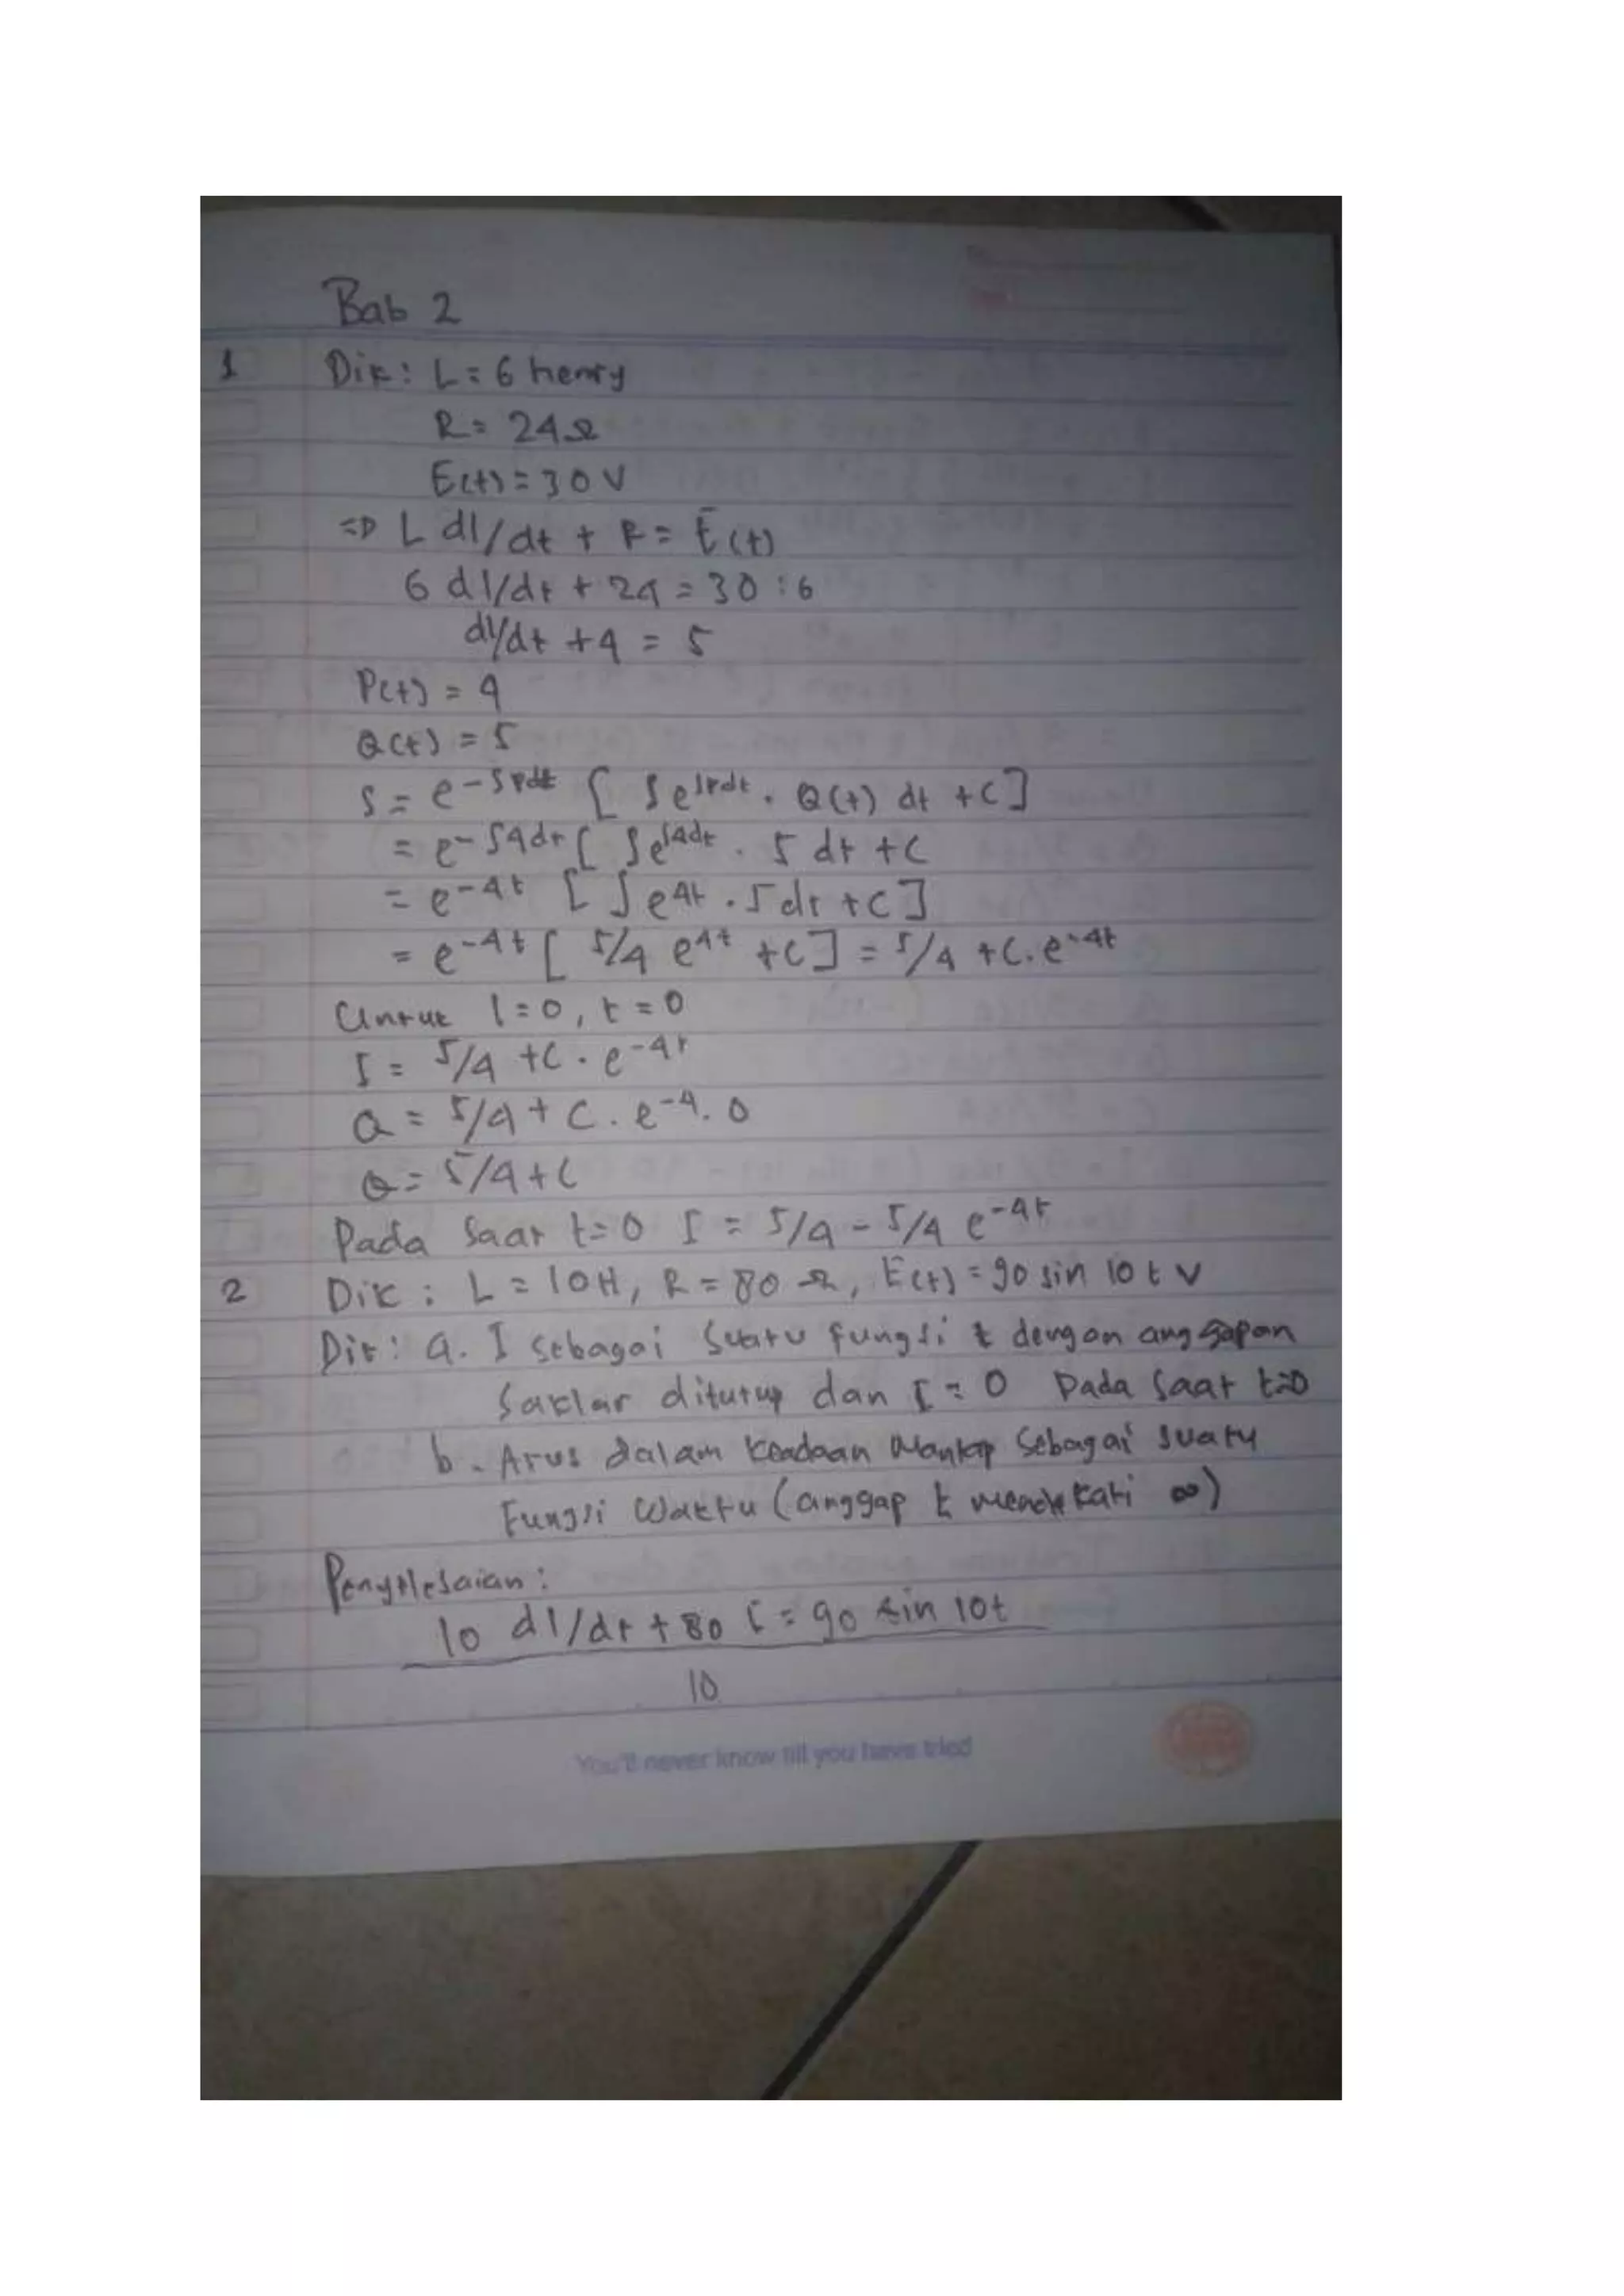 Bab 2
1 Dik: L = 6 henry
R = 24 Ω
E(t) = 30 V
=> L dI/dt + R = E(t)
6 dI/dt + 24 = 30 : 6
dI/dt + 4 = 5
P(t) = 4
Q(t) = 5
I = e-∫Pdt [ ∫e∫Pdt . Q(t) dt + C ]
= e-∫4dt [ ∫e∫4dt . 5 dt + C
= e-4t [ ∫e4t . 5 dt + C ]
= e-4t [ 5/4 e4t + C ] = 5/4 + C. e-4t
Untuk I = 0, t = 0
I = 5/4 + C . e-4t
0 = 5/4 + C . e-4. 0
0 = 5/4 + C
Pada saat t = 0 I = 5/4 - 5/4 e-4t
2 Dik : L = 10H, R = 80 Ω, E(t) = 90 sin 10 t V
Dit: a. I sebagai suatu fungsi t dengan anggapan
saklar ditutup dan I = 0 pada saat t=0
b. Arus dalam keadaan mantap sebagai suatu
fungsi waktu (anggap t mendekati ∞)
Penyelesaian :
10 dI/dt + 80 I = 90 sin 10t
10
You'll never know till you have tried